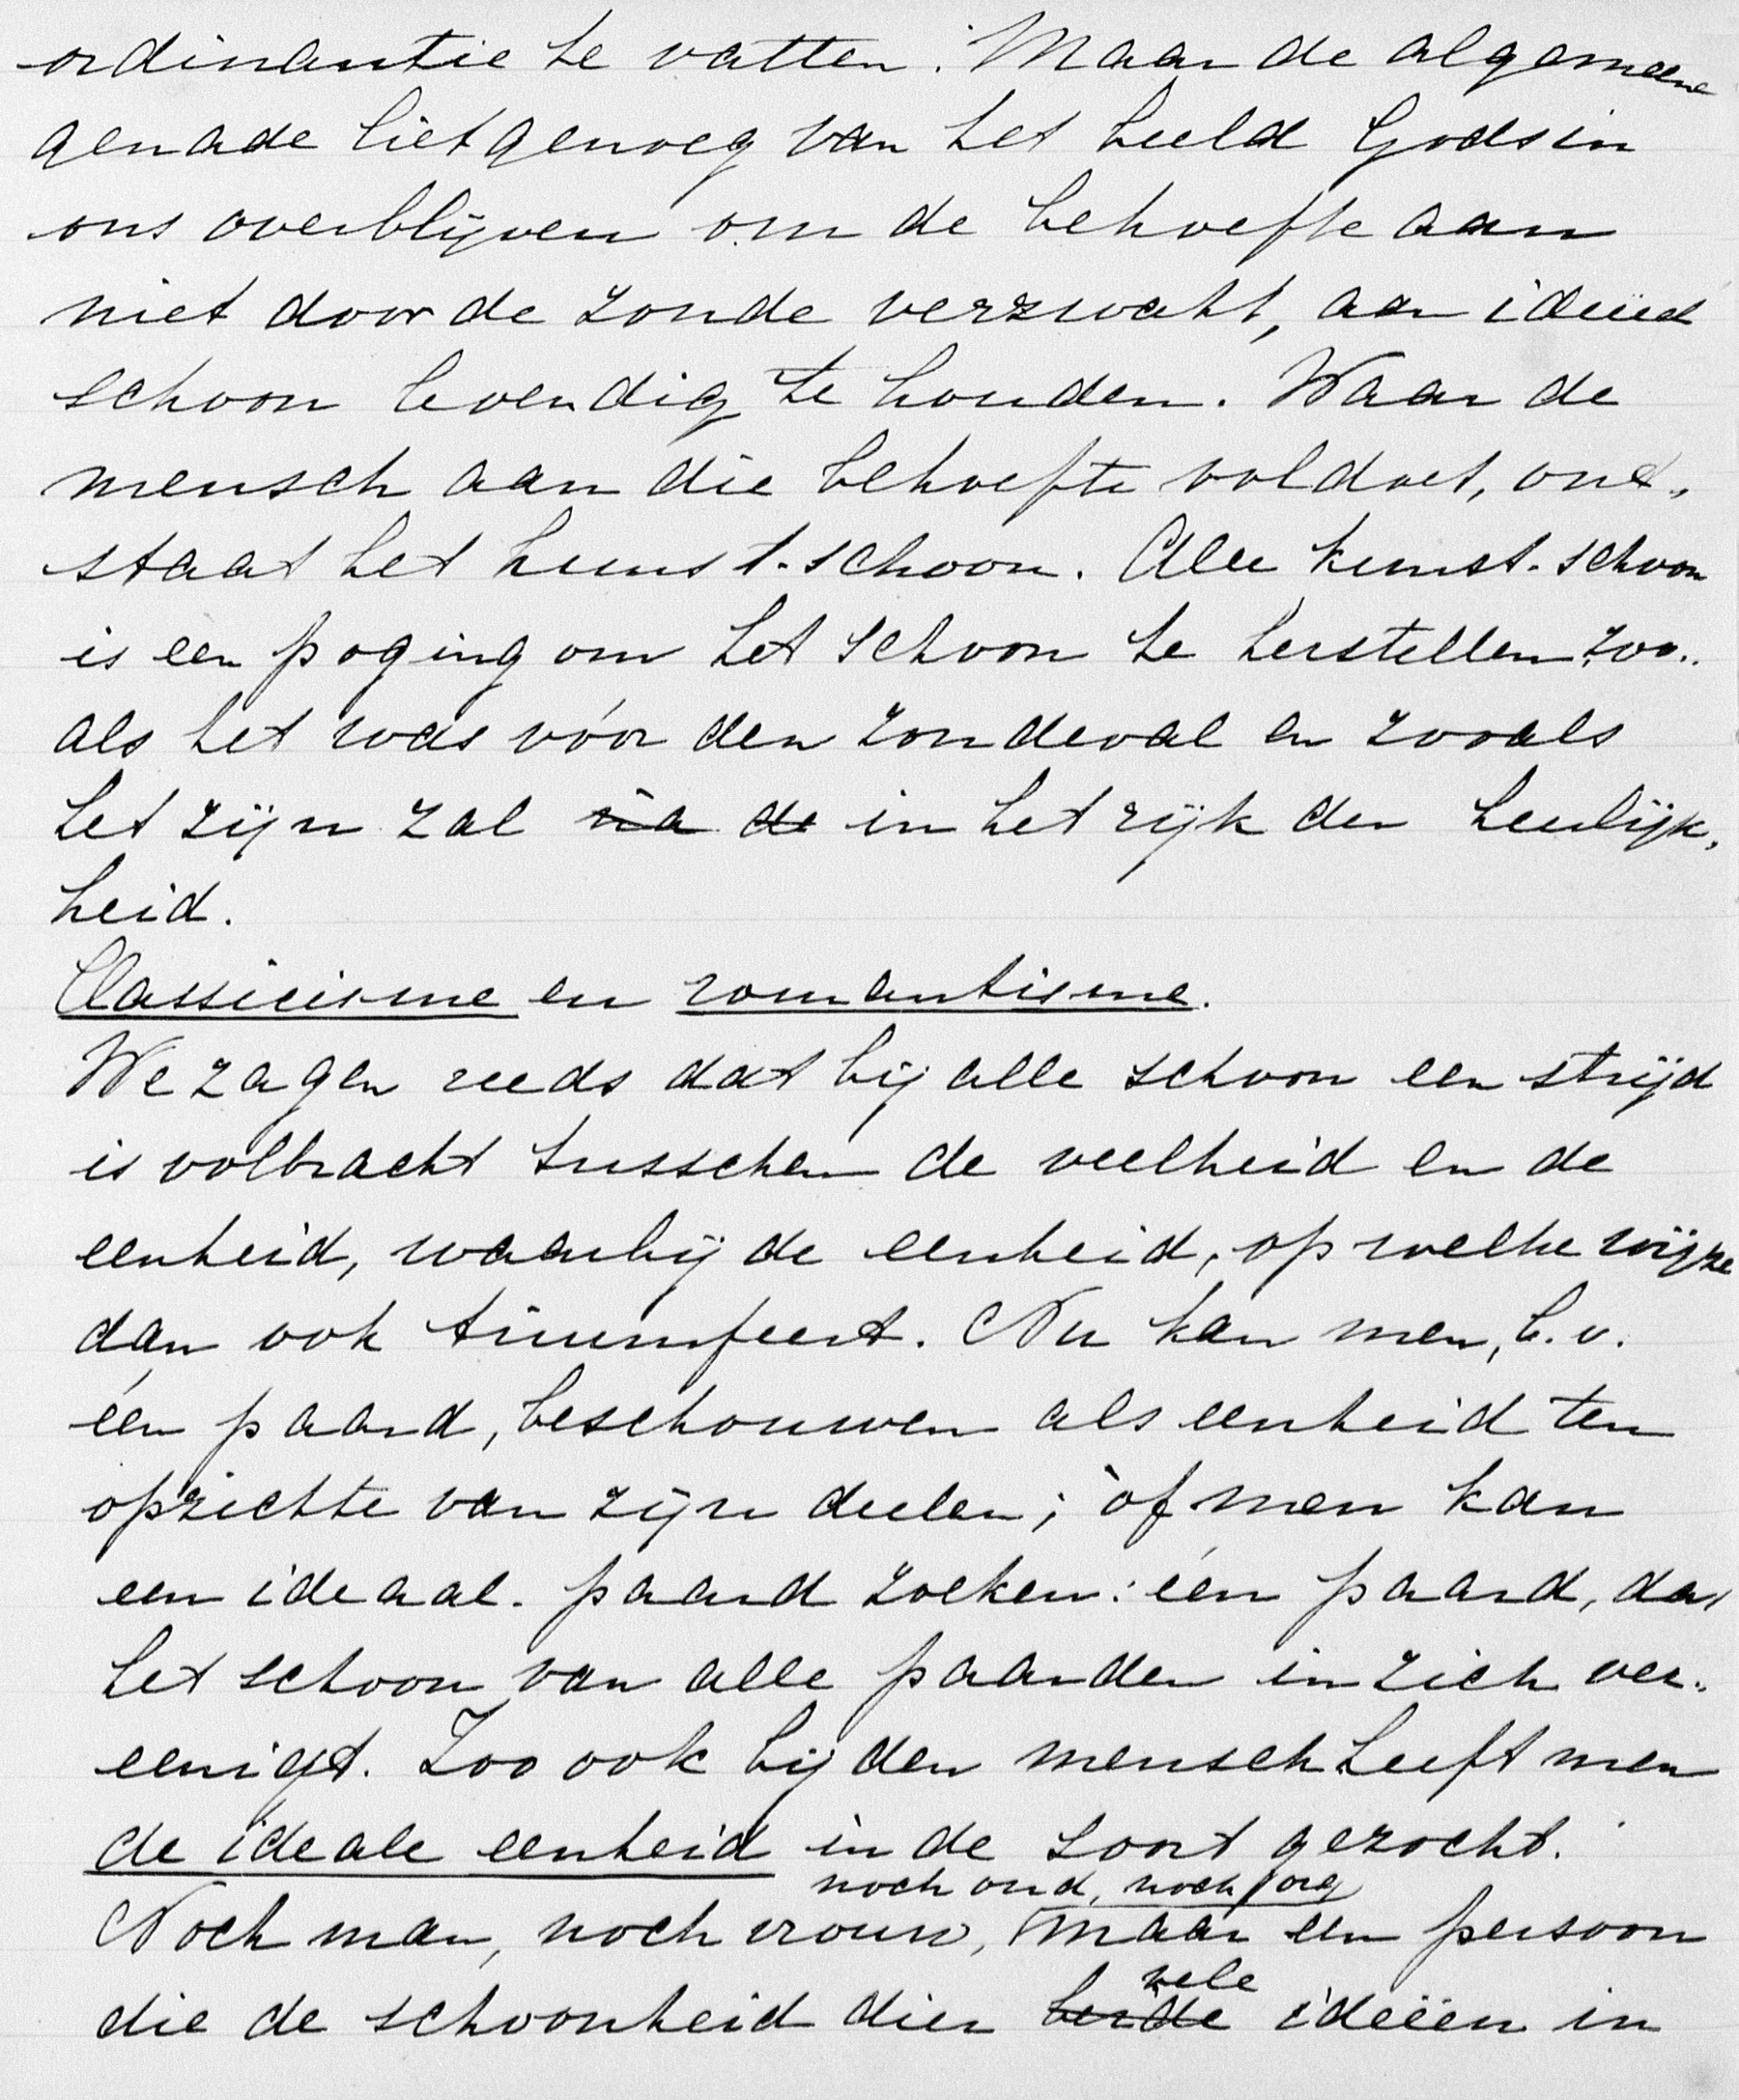 ordinantie te vatten. Maar de algemeene
genade liet genoeg van het beeld Gods in
ons overblijven om de behoefte aan
niet door de zonde verzwakt, aan ideëel
schoon levendig te houden. Waar de
mensch aan die behoefte voldoet, ont-
staat het kunst-schoon. Alle kunst-schoon
is een poging om het schoon te herstellen zoo-
als het was vóór den zondeval en zooals
het zijn zal na de in het rijk der heerlijk-
heid.
Classicisme en romantisme.
We zagen reeds dat bij alle schoon een strijd
is volbracht tusschen de veelheid en de
eenheid, waarbij de eenheid, op welke wijze
dan ook triumfeert. Nu kan men, b.v.
één paard, beschouwen als eenheid ten
opzichte van zijn deelen; òf men kan
een ideaal-paard zoeken: één paard, dat
het schoon van alle paarden in zich ver-
eenigt. Zoo ook bij den mensch heeft men
de ideale eenheid in de soort gezocht.
noch oud, noch jong
Noch man, noch vrouw, maar een persoon
vele
die de schoonheid dier beide ideëen in